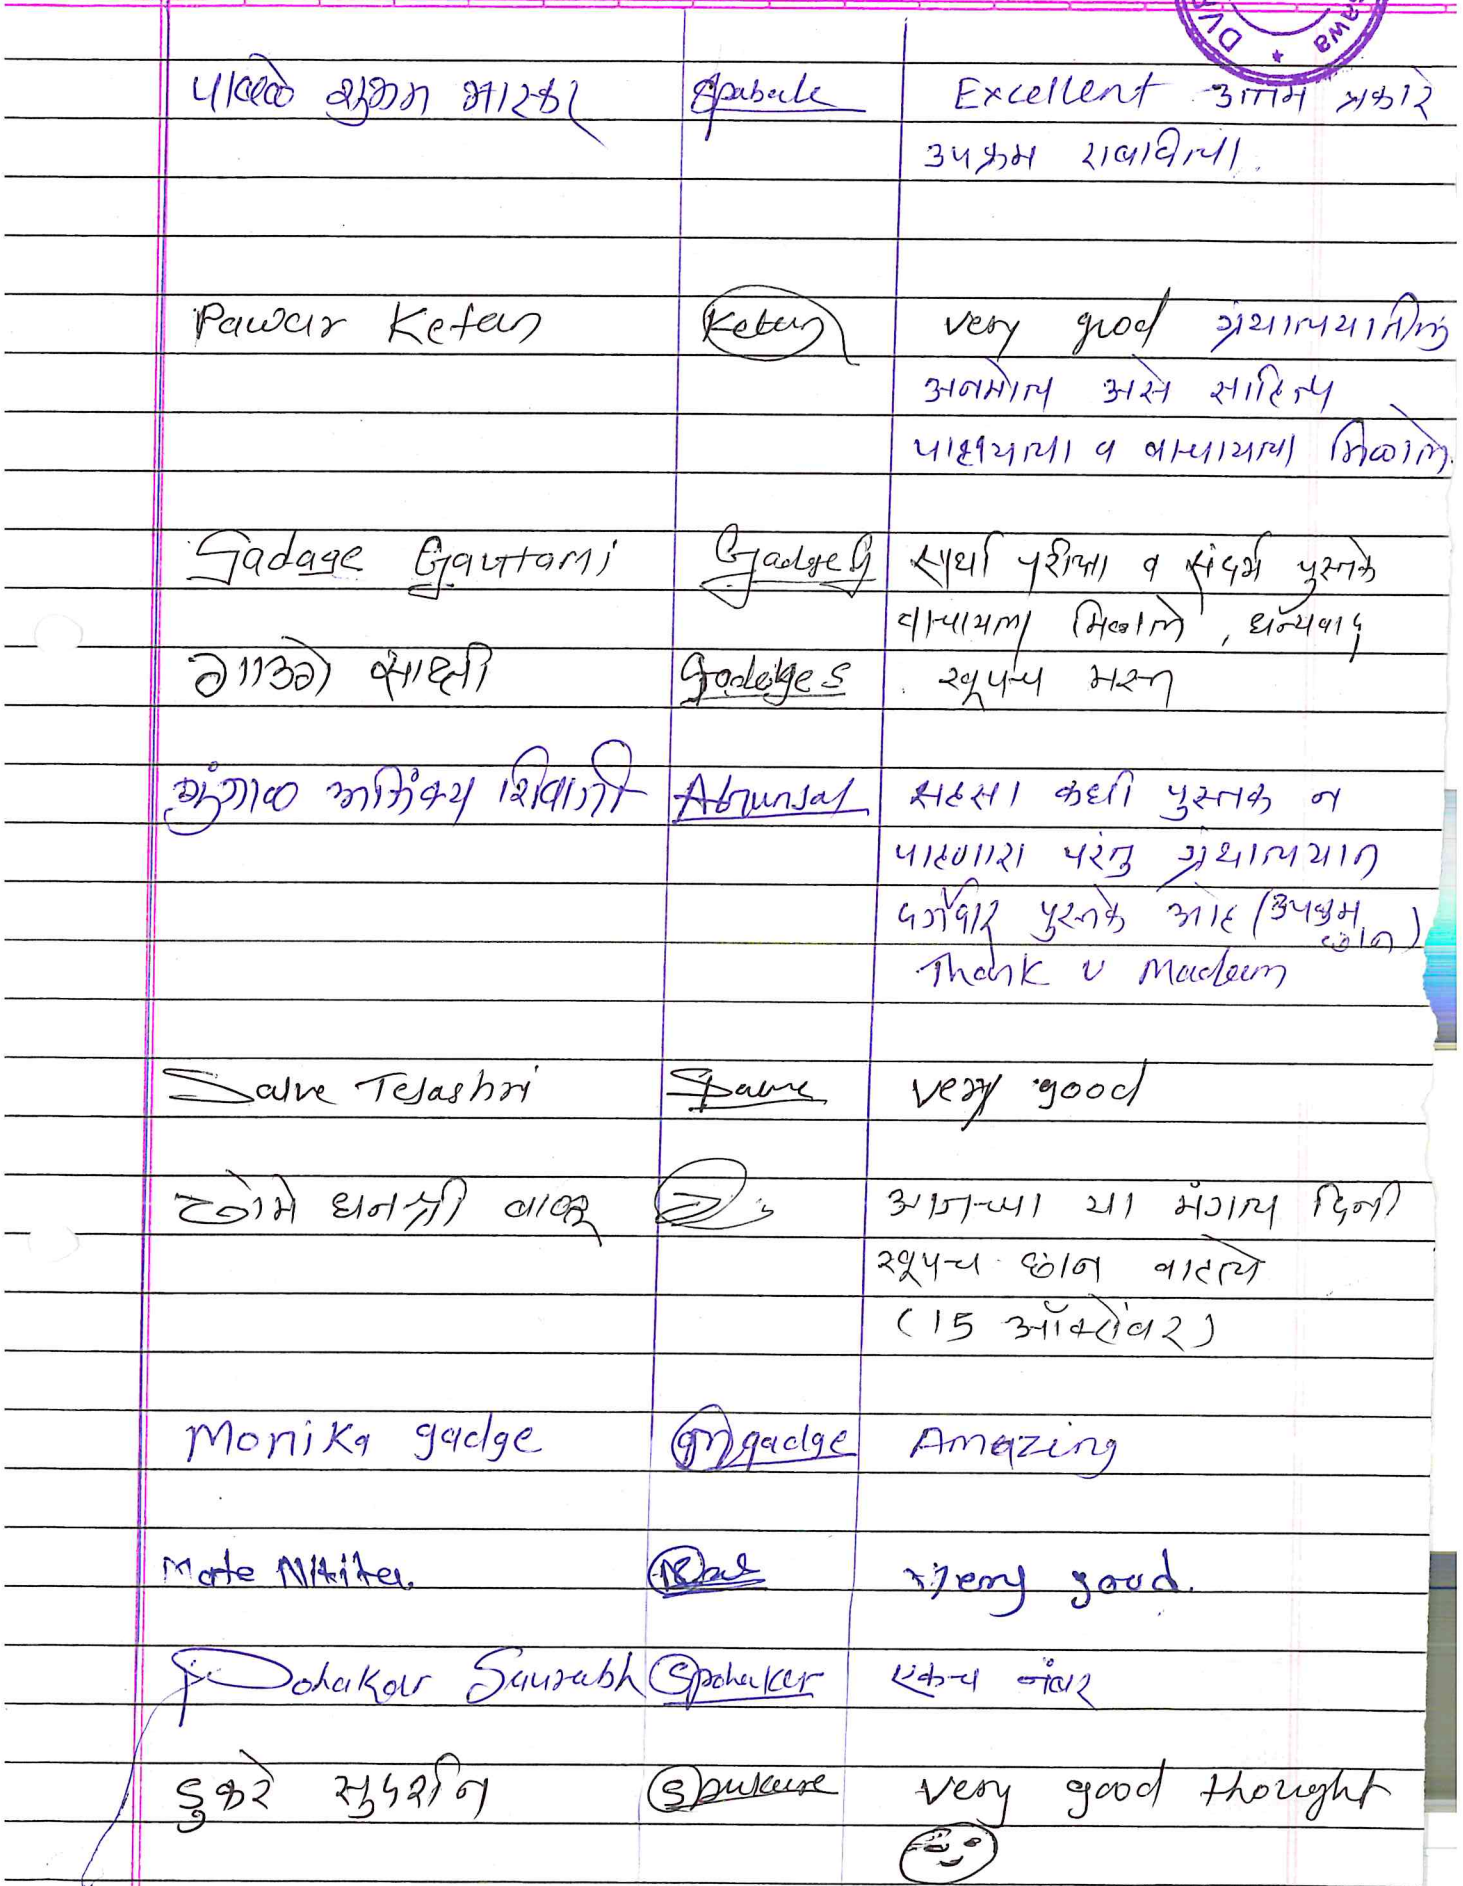 पाबळे शुभम भास्कर Spabale Excellent उत्तम प्रकारे
उपक्रम राबविला.
Pawar Ketan Ketan very good ग्रंथालयातील
अनमोल असे साहित्य
पाहायला व वाचायला मिळाले.
Gadage Gauttami Gadge G स्पर्धा परीक्षा व संदर्भ पुस्तके
वाचायला मिळाले, धन्यवाद
गाडगे साक्षी Gadge S खूपच मस्त
शिवाजी सहसा कधी पुस्तक न
पाहणारा परंतु ग्रंथालयात
पुस्तके आहे (उपक्रम
छान)
Thank U Madam
Salve Tejashri Salve very good
ढोमे धनश्री बाळू आजच्या या मंगल दिनी
खूपच छान वाटले
(15 ऑक्टोंबर)
Monika gadge M gadge Amazing
Mote Nikita very good.
Pohakar Saurabh Spohakar एकच नंबर
डुकरे सुदर्शन very good thought